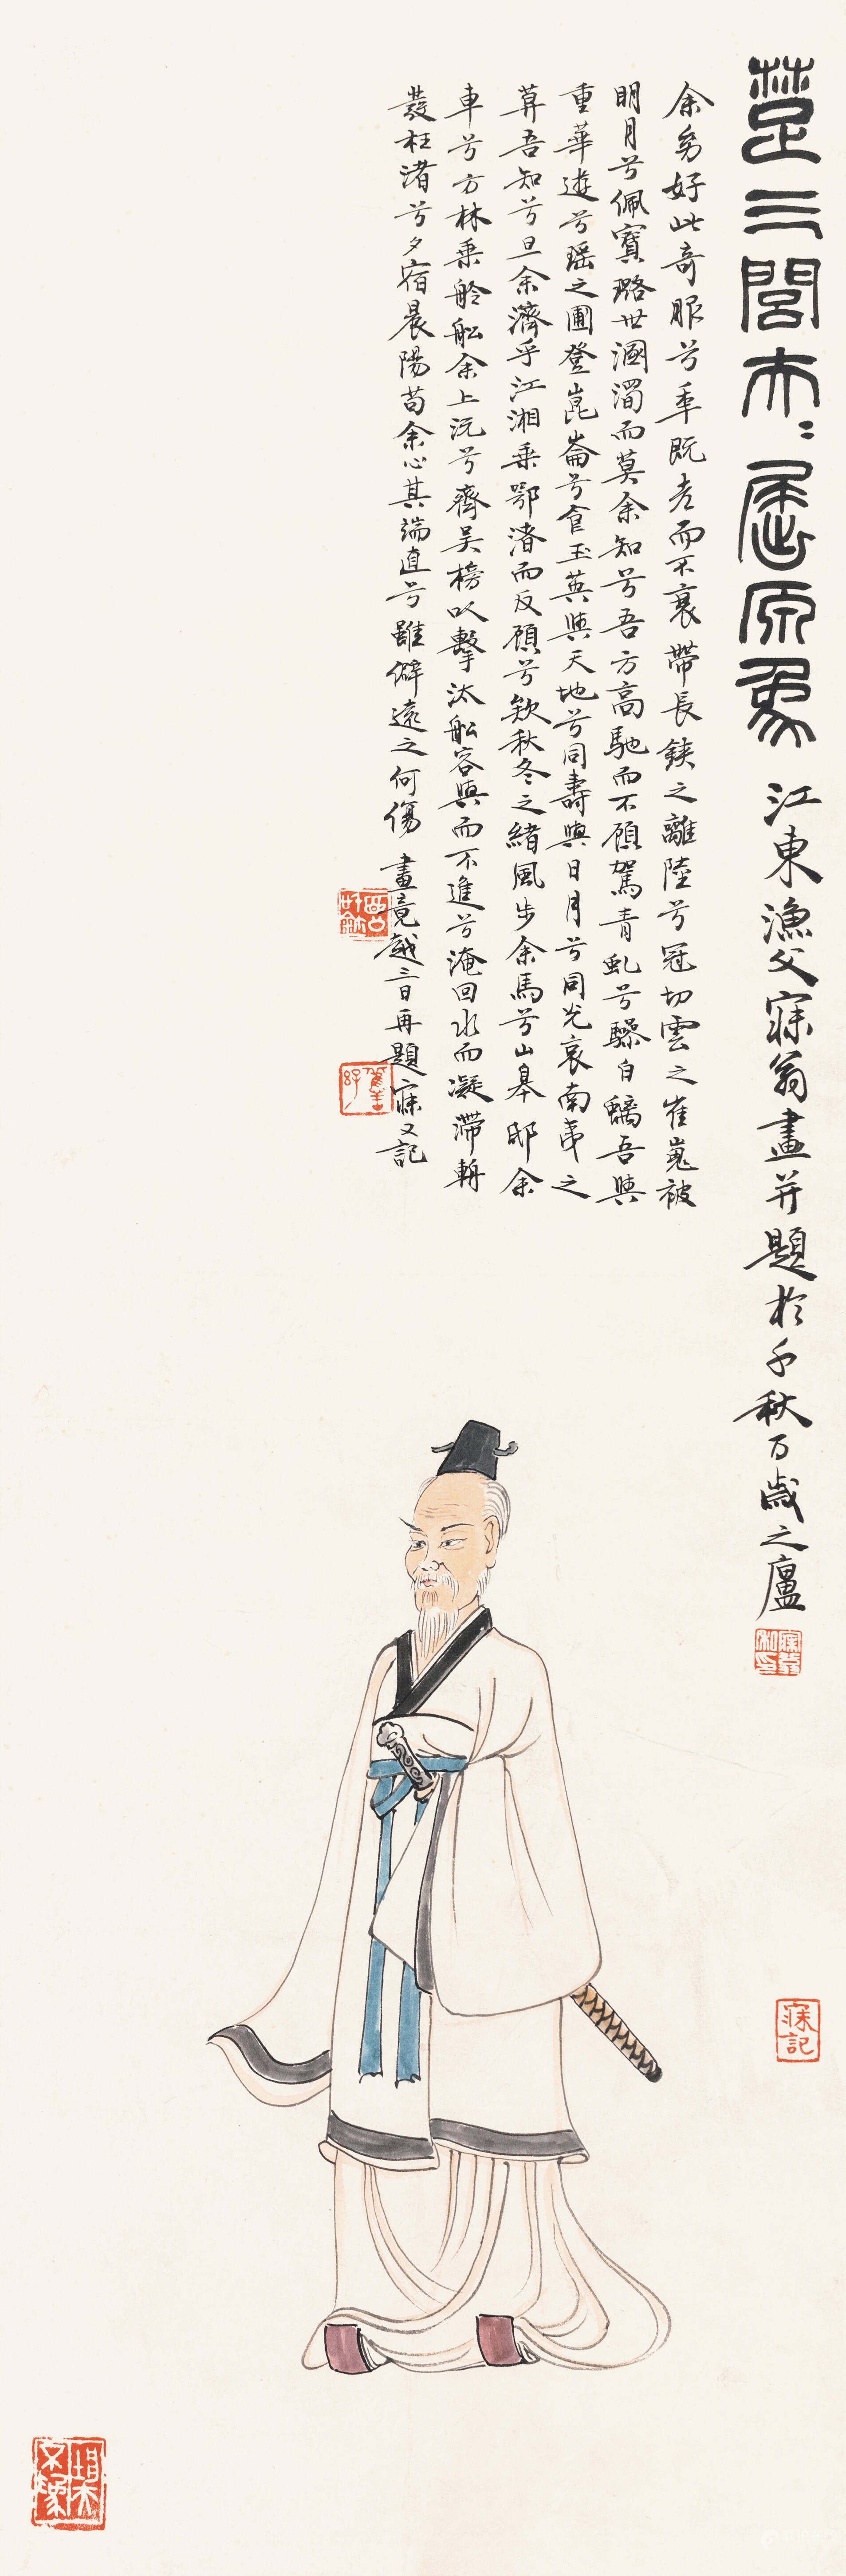 楚三閭大夫屈原像 江東漁父寐翁畫并題於千秋万歲之廬
余幼好此奇服兮年既老而不衰帶長鋏之離陸兮冠切雲之崔嵬被
明月兮佩寶璐世溷濁而莫余知兮吾方高馳而不顧駕青虬兮驂白螭吾與
重華遊兮瑶之圃登崑崙兮食玉英與天地兮同壽與日月兮同光哀南夷之
莫吾知兮旦余濟乎江湘乘鄂渚而反顧兮欸秋冬之緒風步余馬兮山皋邸余
車兮方林乘舲船余上沅兮齊吴榜以擊汰船容與而不進兮淹回水而凝滯朝
發枉渚兮夕宿晨陽苟余心其端直兮雖僻遠之何傷 畫竟越三日再題寐叟記
寐記